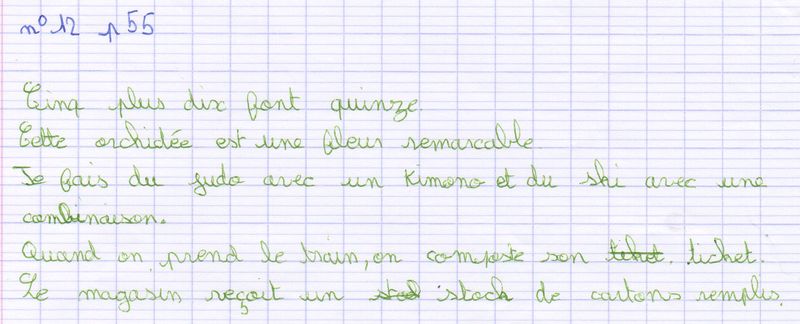 n° 12 p 55
Cinq plus dix font quinze.
Cette orchidée est une fleur remarcable
Je fais du judo avec un kimono et du ski avec une
combinaison.
Quand on prend le train, on composte son ticket.
Le magasin reçoit un stock de cartons remplis.